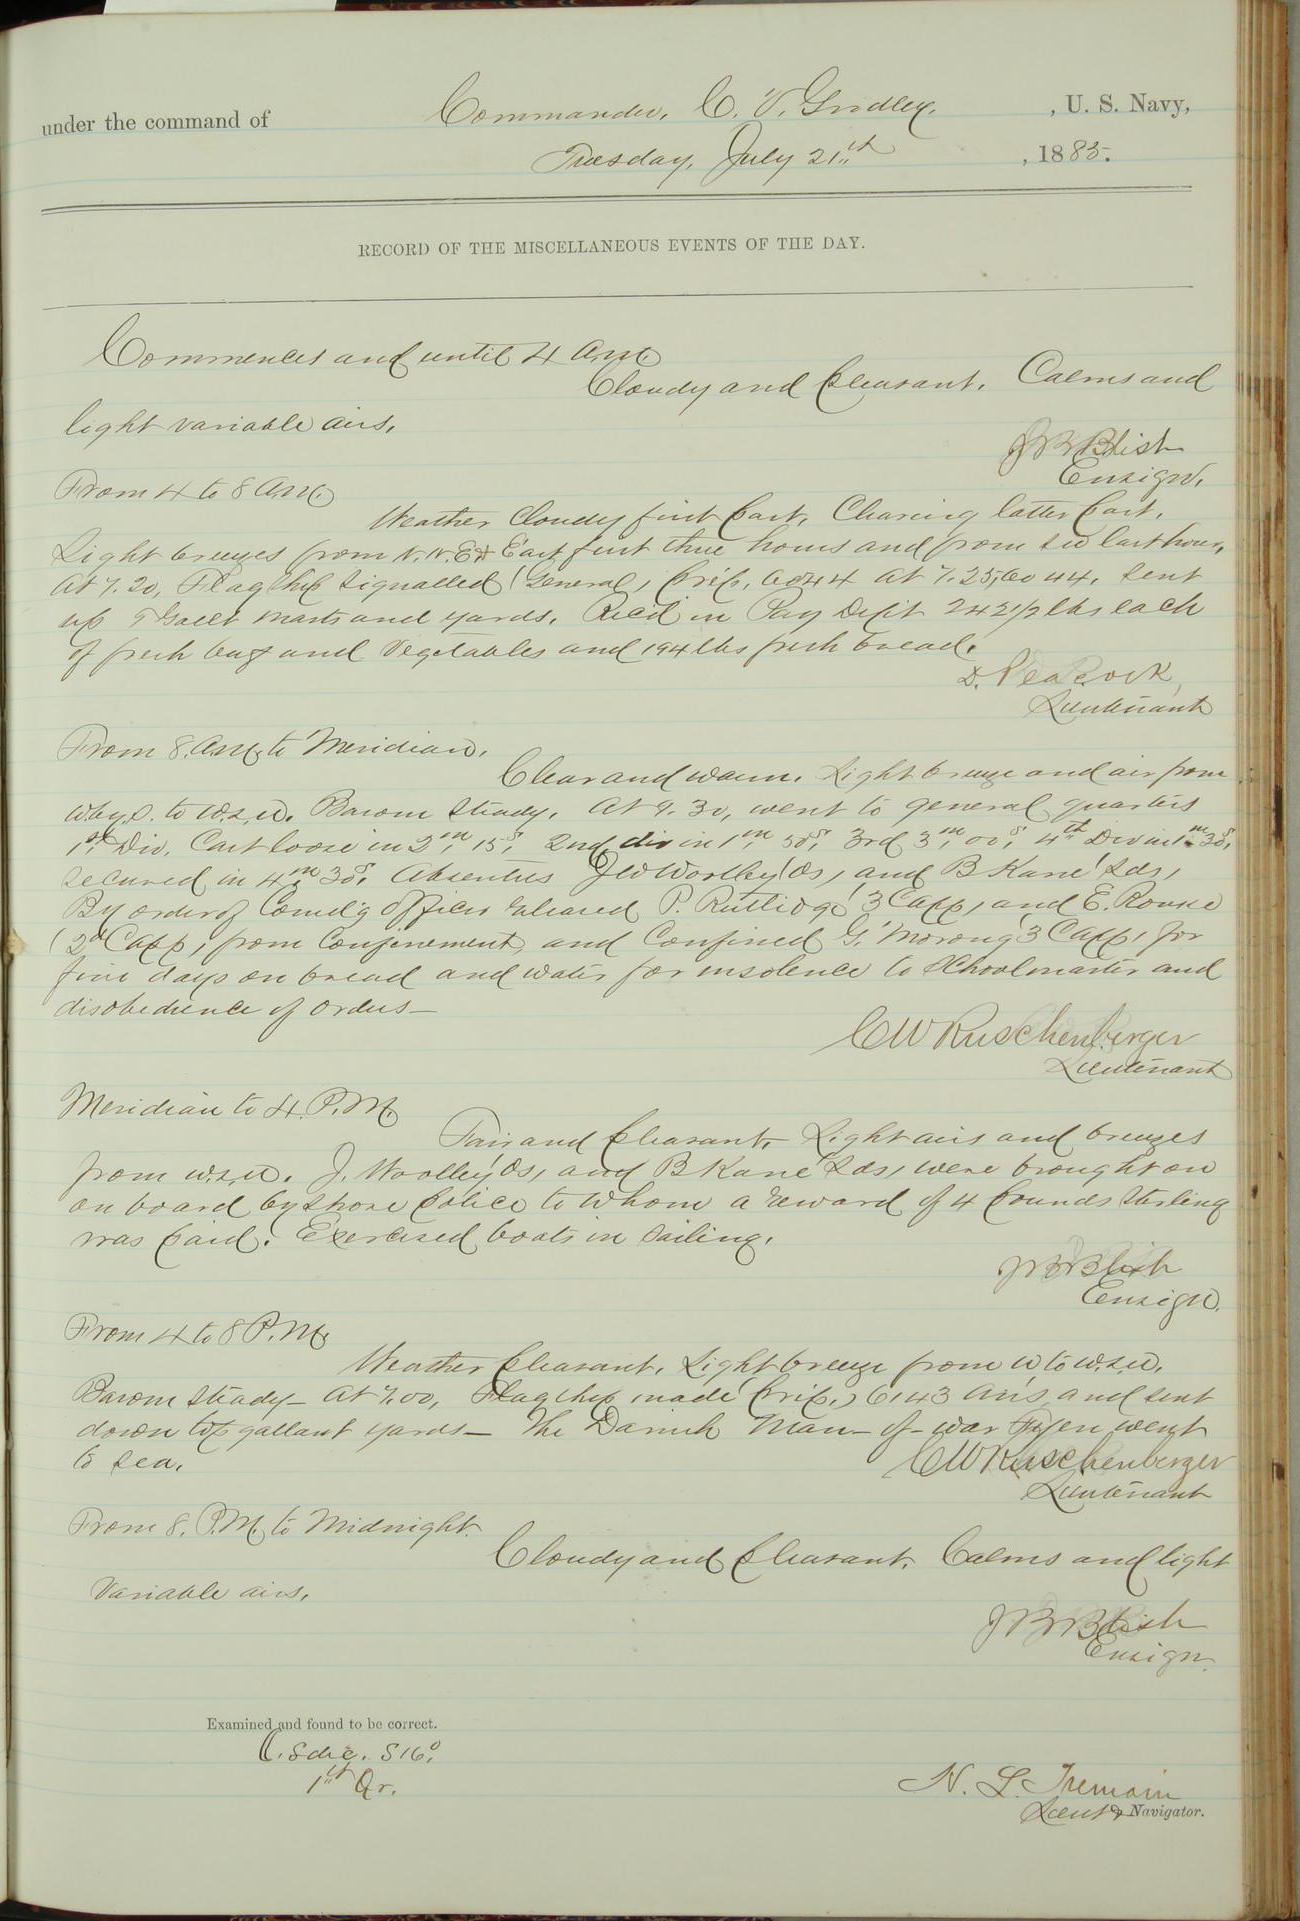 under the command of Commander, C. V. Gridley. , U. S. Navy,
Tuesday, July 21st , 1885.
RECORD OF THE MISCELLANEOUS EVENTS OF THE DAY.
Commences and until 4 A.M.
Cloudy and pleasant. Calms and
light variable airs.
J B Blish
Ensign.
From 4 to 8 A.M.
Weather cloudy first part, clearing latter part.
Light breezes from N.N.E. & East first three hours and from SW last hour.
At 7.20, Flagship signalled (General, Prep. 6044 At 7.25, 6044. Sent
up T'Gallt masts and yards. Rec'd in Pay Dep't 242 1/2 lbs each
of fresh beef and vegetables and 194 lbs fresh bread.
D. Peacock,
Lieutenant
From 8. A.M. to Meridian.
Clear and warm. Light breeze and air from
W. by S. to W.S.W. Barom steady. At 9.30, went to general quarters
1st Div. Cast loose in 2m, 15s, 2nd div in 1m, 50s, 3rd 3m, 00s, 4th Div in 1m 30s,
secured in 4m 30s. Absentees J W Woolley (Os) and B Kane (Lds)
By order of Comd'g officer released P. Rutlidge (3 Capp) and E. Rourke
(2d Capp) from confinement, and confined G. Morong (3 Capp) for
five days on bread and water for insolence to schoolmaster and
disobedience of orders—
C W Ruschenberger
Lieutenant
Meridian to 4. P.M.
Fair and pleasant. Light airs and breezes
from W.S.W. J. Woolley (Os) and B Kane (Lds) were brought on
on board by shore police to whom a reward of 4 pounds sterling
was paid. Exercised boats in sailing.
J B Blish
Ensign.
From 4 to 8 P.M.
Weather pleasant. Light breeze from W to W.S.W.
Barom steady— At 7.00, Flagship made (Prep.) 6143 Ans, and sent
down top gallant yards— The Danish Man-of-war went
to sea.
C W Ruschenberger
Lieutenant
From 8. P.M. to Midnight.
Cloudy and pleasant. Calms and light
variable airs.
J B Blish
Ensign.
Examined and found to be correct.
S 16°.
1st Qr.
N. L. Tremain
Lieut & Navigator.